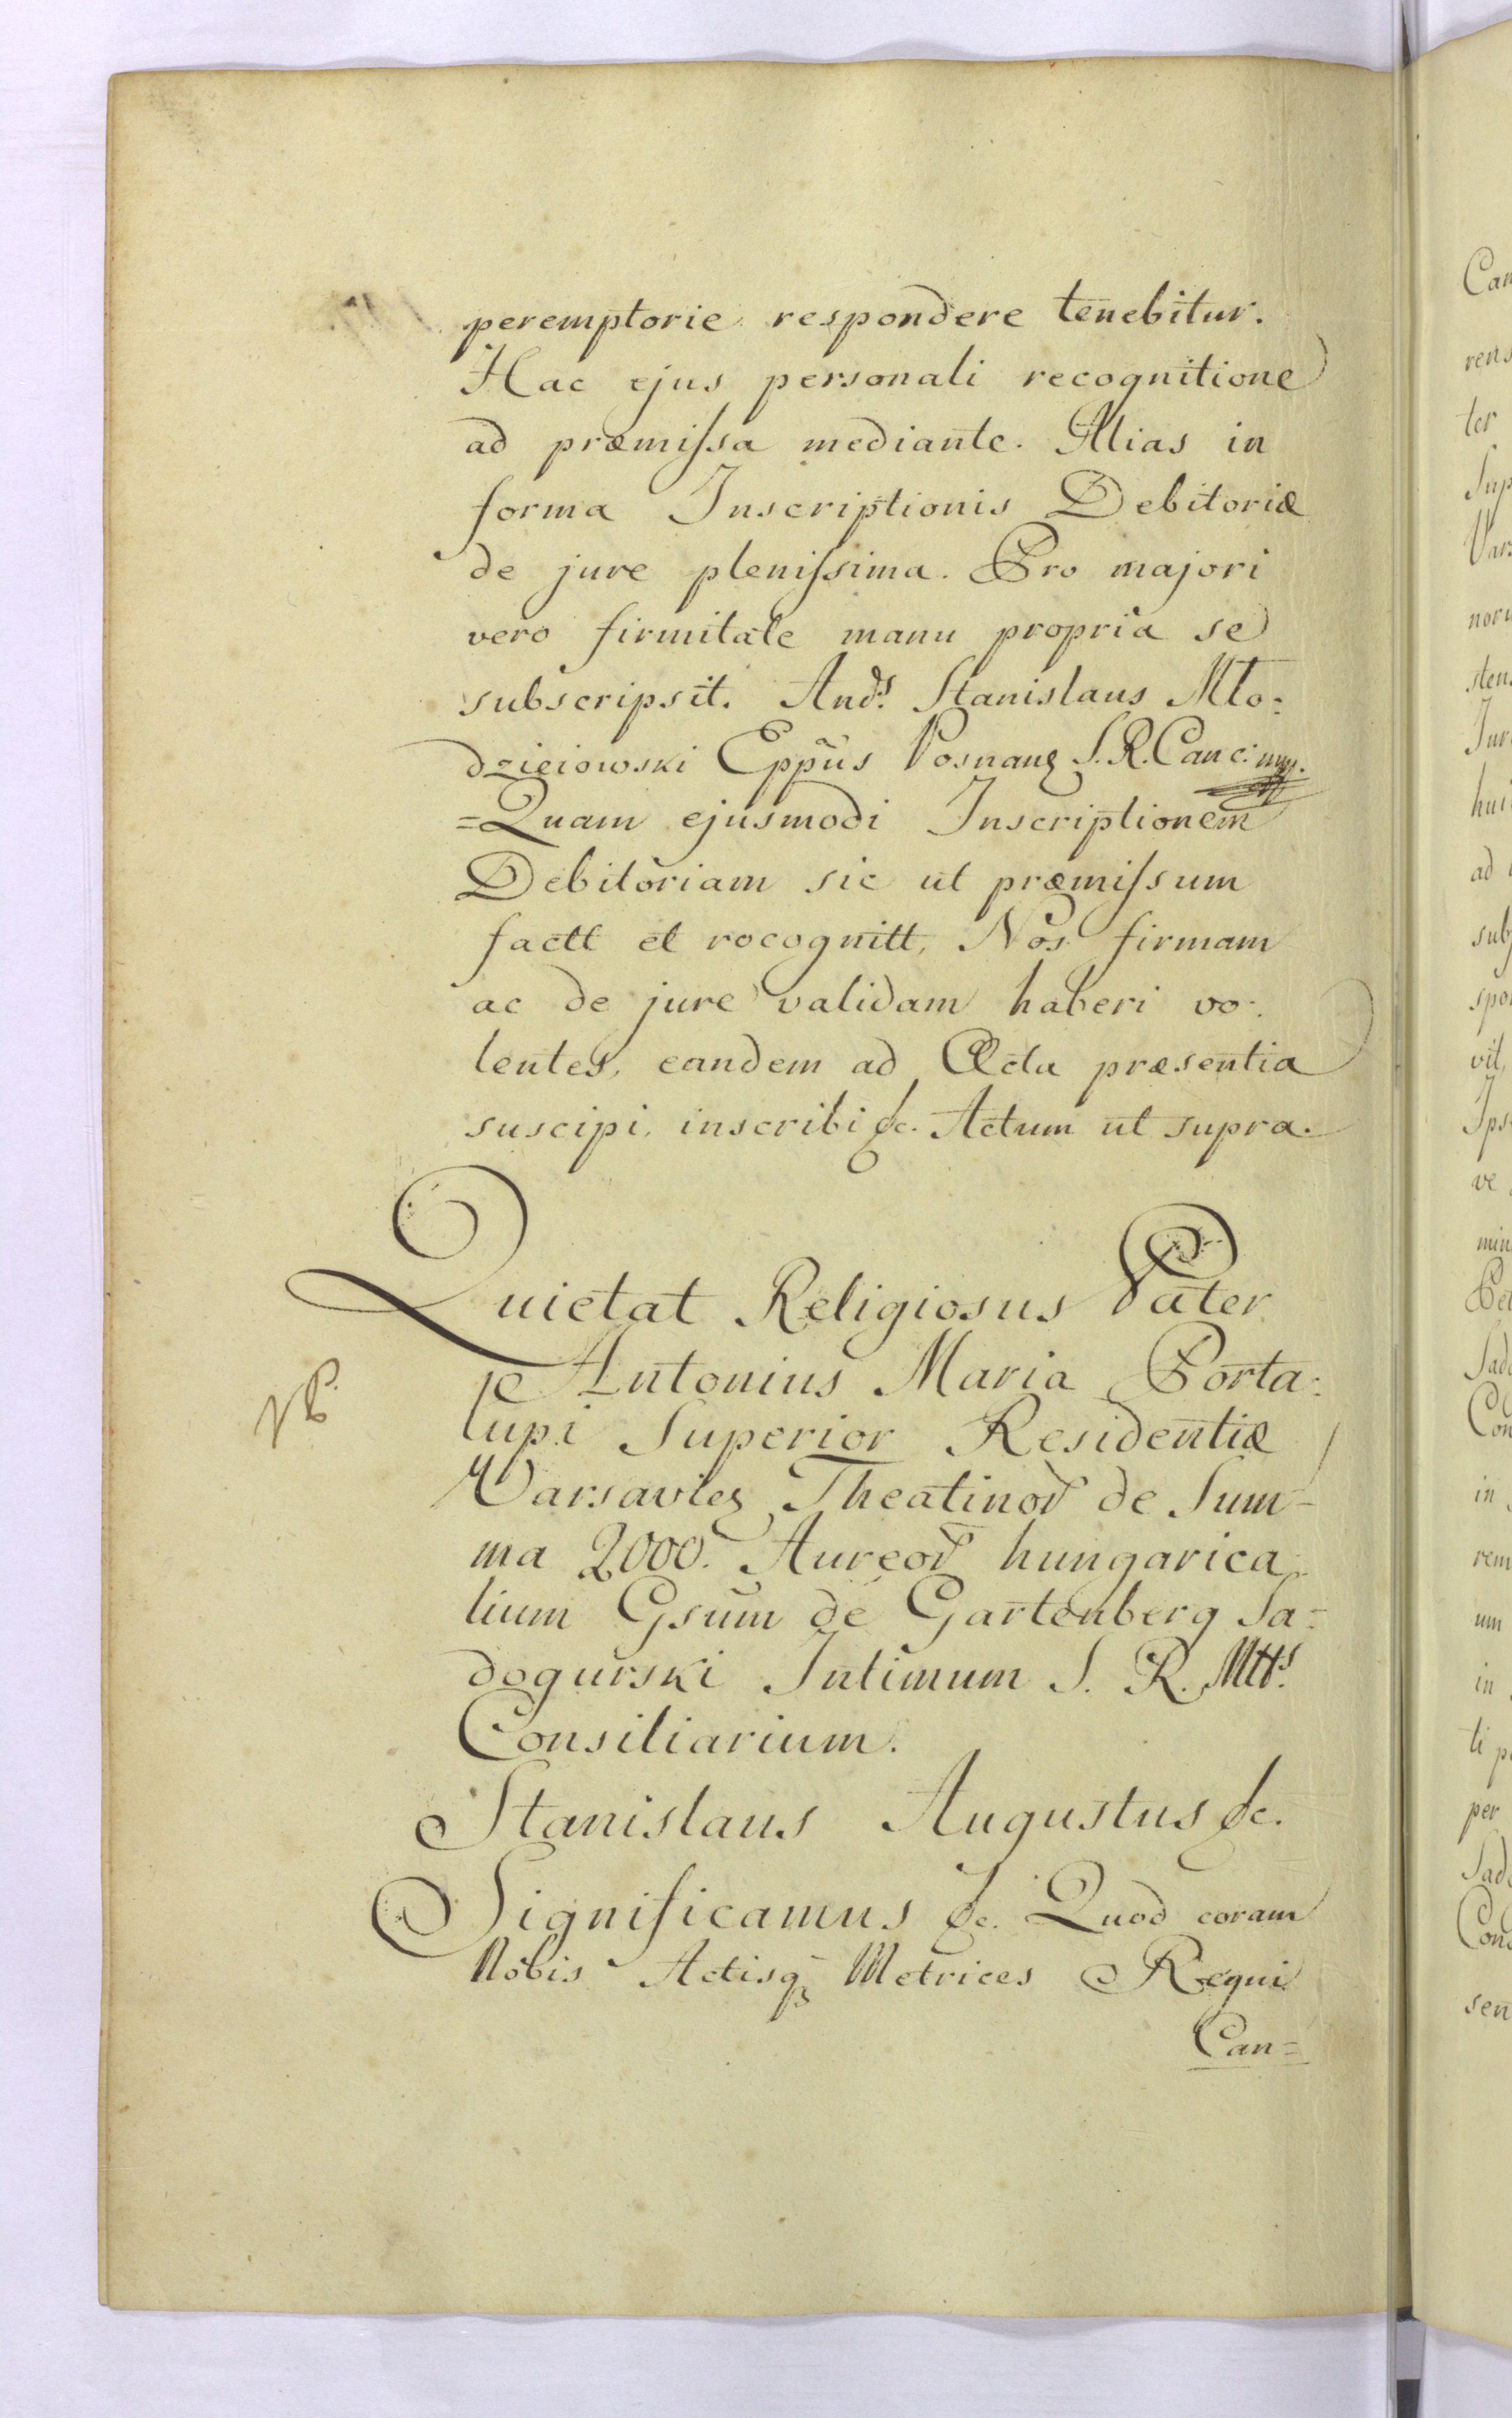 peremptorie respondere tenebitur.
Hac ejus personali recognitione
ad præmiſsa mediante. Alias in
forma Inscriptionis Debitoriæ
de jure pleniſsima. Pro majori
vero firmitate manu propria se
subscripsit. Ands. Stanislaus Mło=
dzieiowski Eppũs Posnanz S. R. Canc: mpp.
=Quam ejusmodi Inscriptionem
Debitoriam sic ut præmiſsum
factt et rocognitt, Nos firmam
ac de jure validam haberi vo=
lentes, eandem ad Acta præsentia
suscipi, inscribi &c. Actum ut supra.
Quietat Religiosus Pater
Antonius Maria Porta=
lupi Superior Residentiæ
Varsaviez Theatinor de Sum=
ma 2000. Aureor hungarica
lium Gsum de Gartenberg Sa=
dogurski Intimum S. R. Mtts
Consiliarium.
Stanislaus Augustus &c.
Significamus &c. Quod coram
Nobis Actisq Metrices Regni
Can=
Can
rens
ter
Sup
Var
noru
sten
Jur
hui
ad
sub
spo
vit,
Ips
ve
min
Pet
Sad
Con
in
rem
um
in
ti p
per
Sad
Con
sen